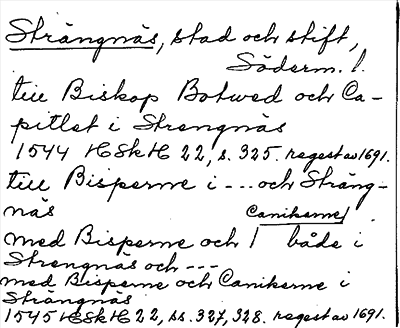 Strängnäs, stad och stift,
Söderm. l.
till Biskop Botwed och Ca-
pitlet i Strengnäs
1544 HSkH 22, s. 325. regest av 1691.
till Bisperne i --- och Sträng-
näs Canikerne
med Bisperne och | både i
Strengnäs och ---
med Bisperne och Canikerne i
Strängnäs
1545 HSkH 22, ss. 327, 328. regest av 1691.